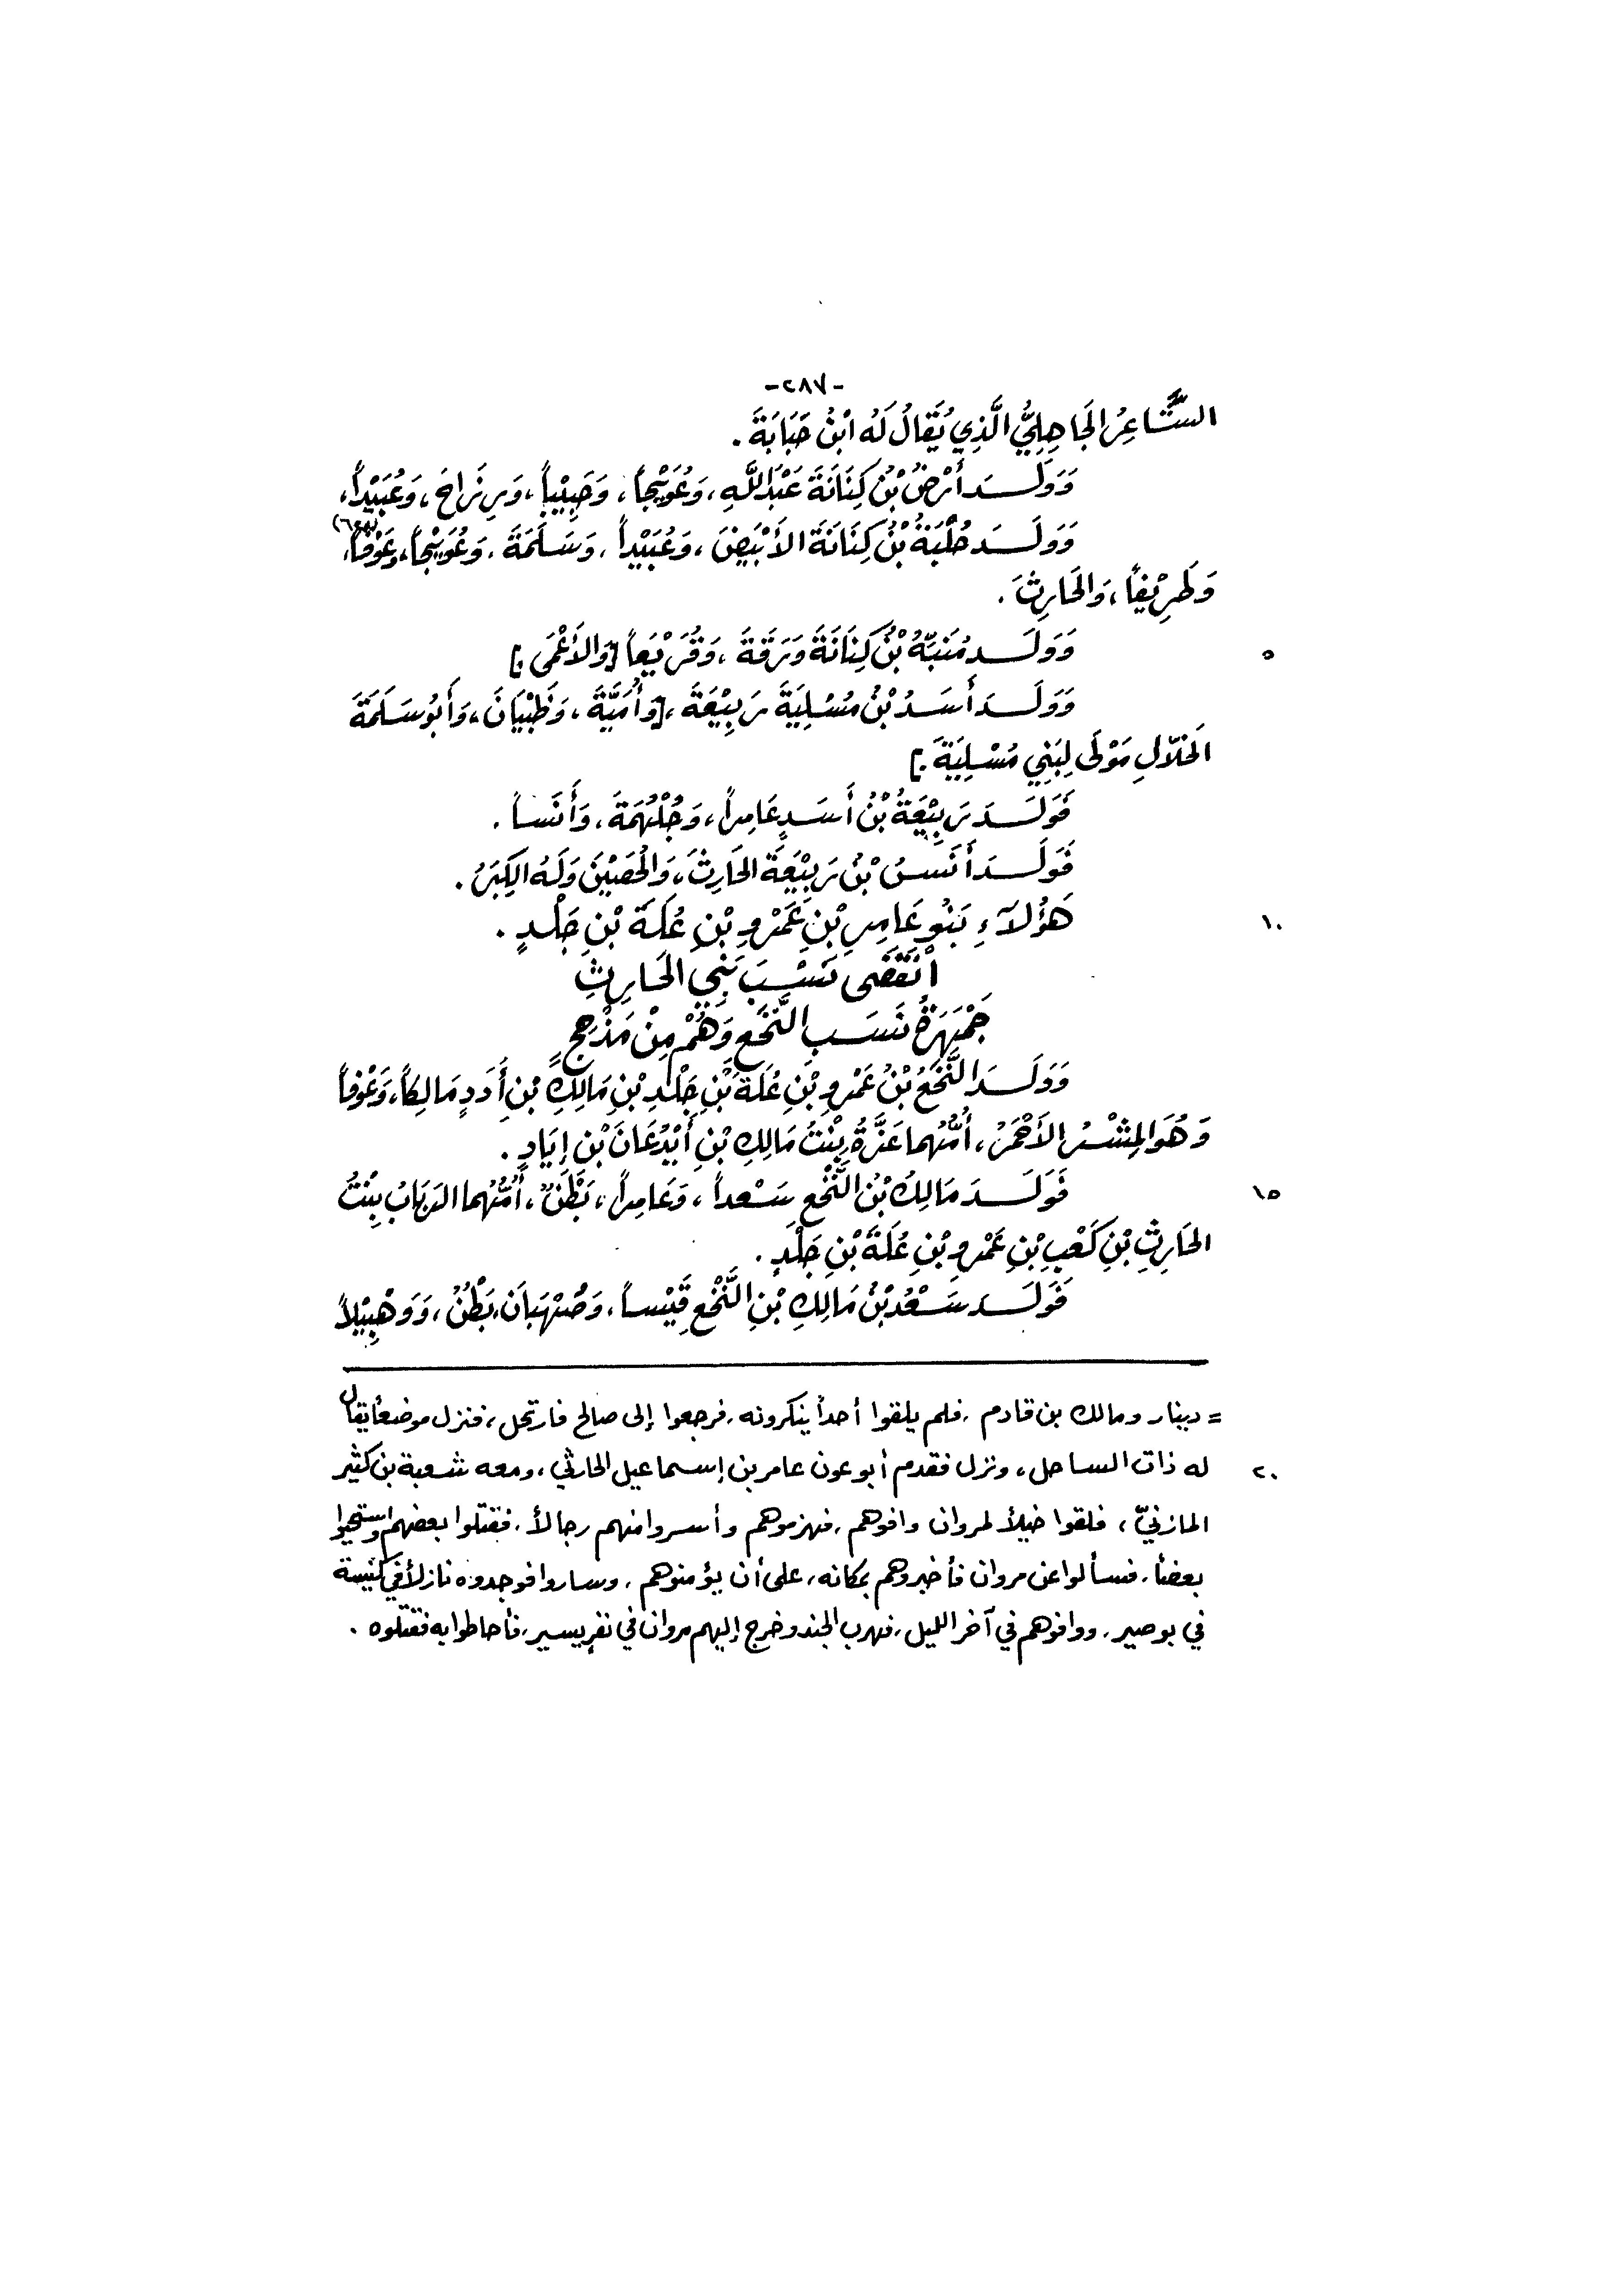 -٢٨٧-
الشَّاعِرُ الجَاهِلِيُّ الَّذِي يُقَالُ لَهُ ابْنُ حَبَابَةَ .
وَوَلَــدَ أَرْضُ بْنُ كِنَانَةَ عَبْدَاللَّهِ ، وَعُوَيْجاً ، وَحَبِيْباً ، وَرِزَاحَ ، وَعُبَيْداً ،
وَوَلَــدَ حُلْبَةُ بْنُ كِنَانَةَ الأَبْيَضَ ، وَعُبَيْداً ، وَسَلَمَةَ ، وَعُوَيْجاً ، وَعَوْفاً ،
وَطَرِيْفاً ، وَالحَارِثَ .
٥ وَوَلَــدَ مُنَبِّهُ بْنُ كِنَانَةَ وَرَقَةَ ، وَقُرَيْعاً [وَالأَعْمَى .]
وَوَلَــدَ أَسَــدُ بْنُ مُسْلِيَةَ رَبِيْعَةَ ، [وَأُمَيَّةَ ، وَظَبْيَانَ ، وَأَبُو سَلَمَةَ
الخَلَّالِ مَوْلَى لِبَنِي مُسْلِيَةَ .]
فَوَلَــدَ رَبِيْعَةُ بْنُ أَسَــدٍ عَامِراً ، وَجُلْهُمَةَ ، وَأَنَســاً .
فَوَلَــدَ أَنَسُ بْنُ رَبِيْعَةَ الحَارِثَ ، وَالحُصَيْنَ وَلَهُ الكِبَرُ .
١٠ هَؤُلآءِ بَنُو عَامِرِ بْنِ عَمْرِو بْنِ عُلَةَ بْنِ جَلْــدٍ .
انْقَضَى نَسَــبُ بَنِي الحَارِثِ
جَمْهَرَةُ نَسَــبِ النَّخَعِ وَهُمْ مِنْ مَذْحِجٍ
وَوَلَــدَ النَّخَعُ بْنُ عَمْرِو بْنِ عُلَةَ بْنِ جَلْــدِ بْنِ مَالِكِ بْنِ أُدَدٍ مَالِكاً ، وَعَوْفاً
وَهُوَ المِشْــرُ الأَحْمَرُ ، أُمُّهُما عَزَّةُ بِنْتُ مَالِكِ بْنِ أَيْدُعَانَ بْنِ إِيَادٍ .
١٥ فَوَلَــدَ مَالِكُ بْنُ النَّخَعِ سَــعْداً ، وَعَامِراً ، بَطْنٌ ، أُمُّهُما الرَبَابُ بِنْتُ
الحَارِثِ بْنِ كَعْبِ بْنِ عَمْرِو بْنِ عُلَةَ بْنِ جَلْدٍ .
فَوَلَــدَ سَــعْدُ بْنُ مَالِكِ بْنِ النَّخَعِ قَيْســاً ، وَصُهْبَانَ ، بَطْنٌ ، وَوَهْبِيْلاً
= دينار ومالك بن قادم ، فلم يلقوا أحداً ينكرونه ، فرجعوا إلى صالح فارتحل ، فنزل موضعاً يقال
٢٠ له ذات الساحل ، ونزل فقدم أبو عون عامر بن إسماعيل الحارثي ، ومعه شعبة بن كثير
المازنيّ ، فلقوا خيلاً لمروان وافوهم ، فهزموهم وأسروا منهم رجالاً ، فقتلوا بعضهم واستحيوا
بعضاً ، فسألوا عن مروان فأخبروهم بمكانه ، على أن يؤمنوهم ، وساروا فوجدوه نازلاً في كنيسة
في بوصير ، ووافوهم في آخر الليل ، فهرب الجند وخرج إليهم مروان في نفر يسير ، فأحاطوا به فقتلوه .